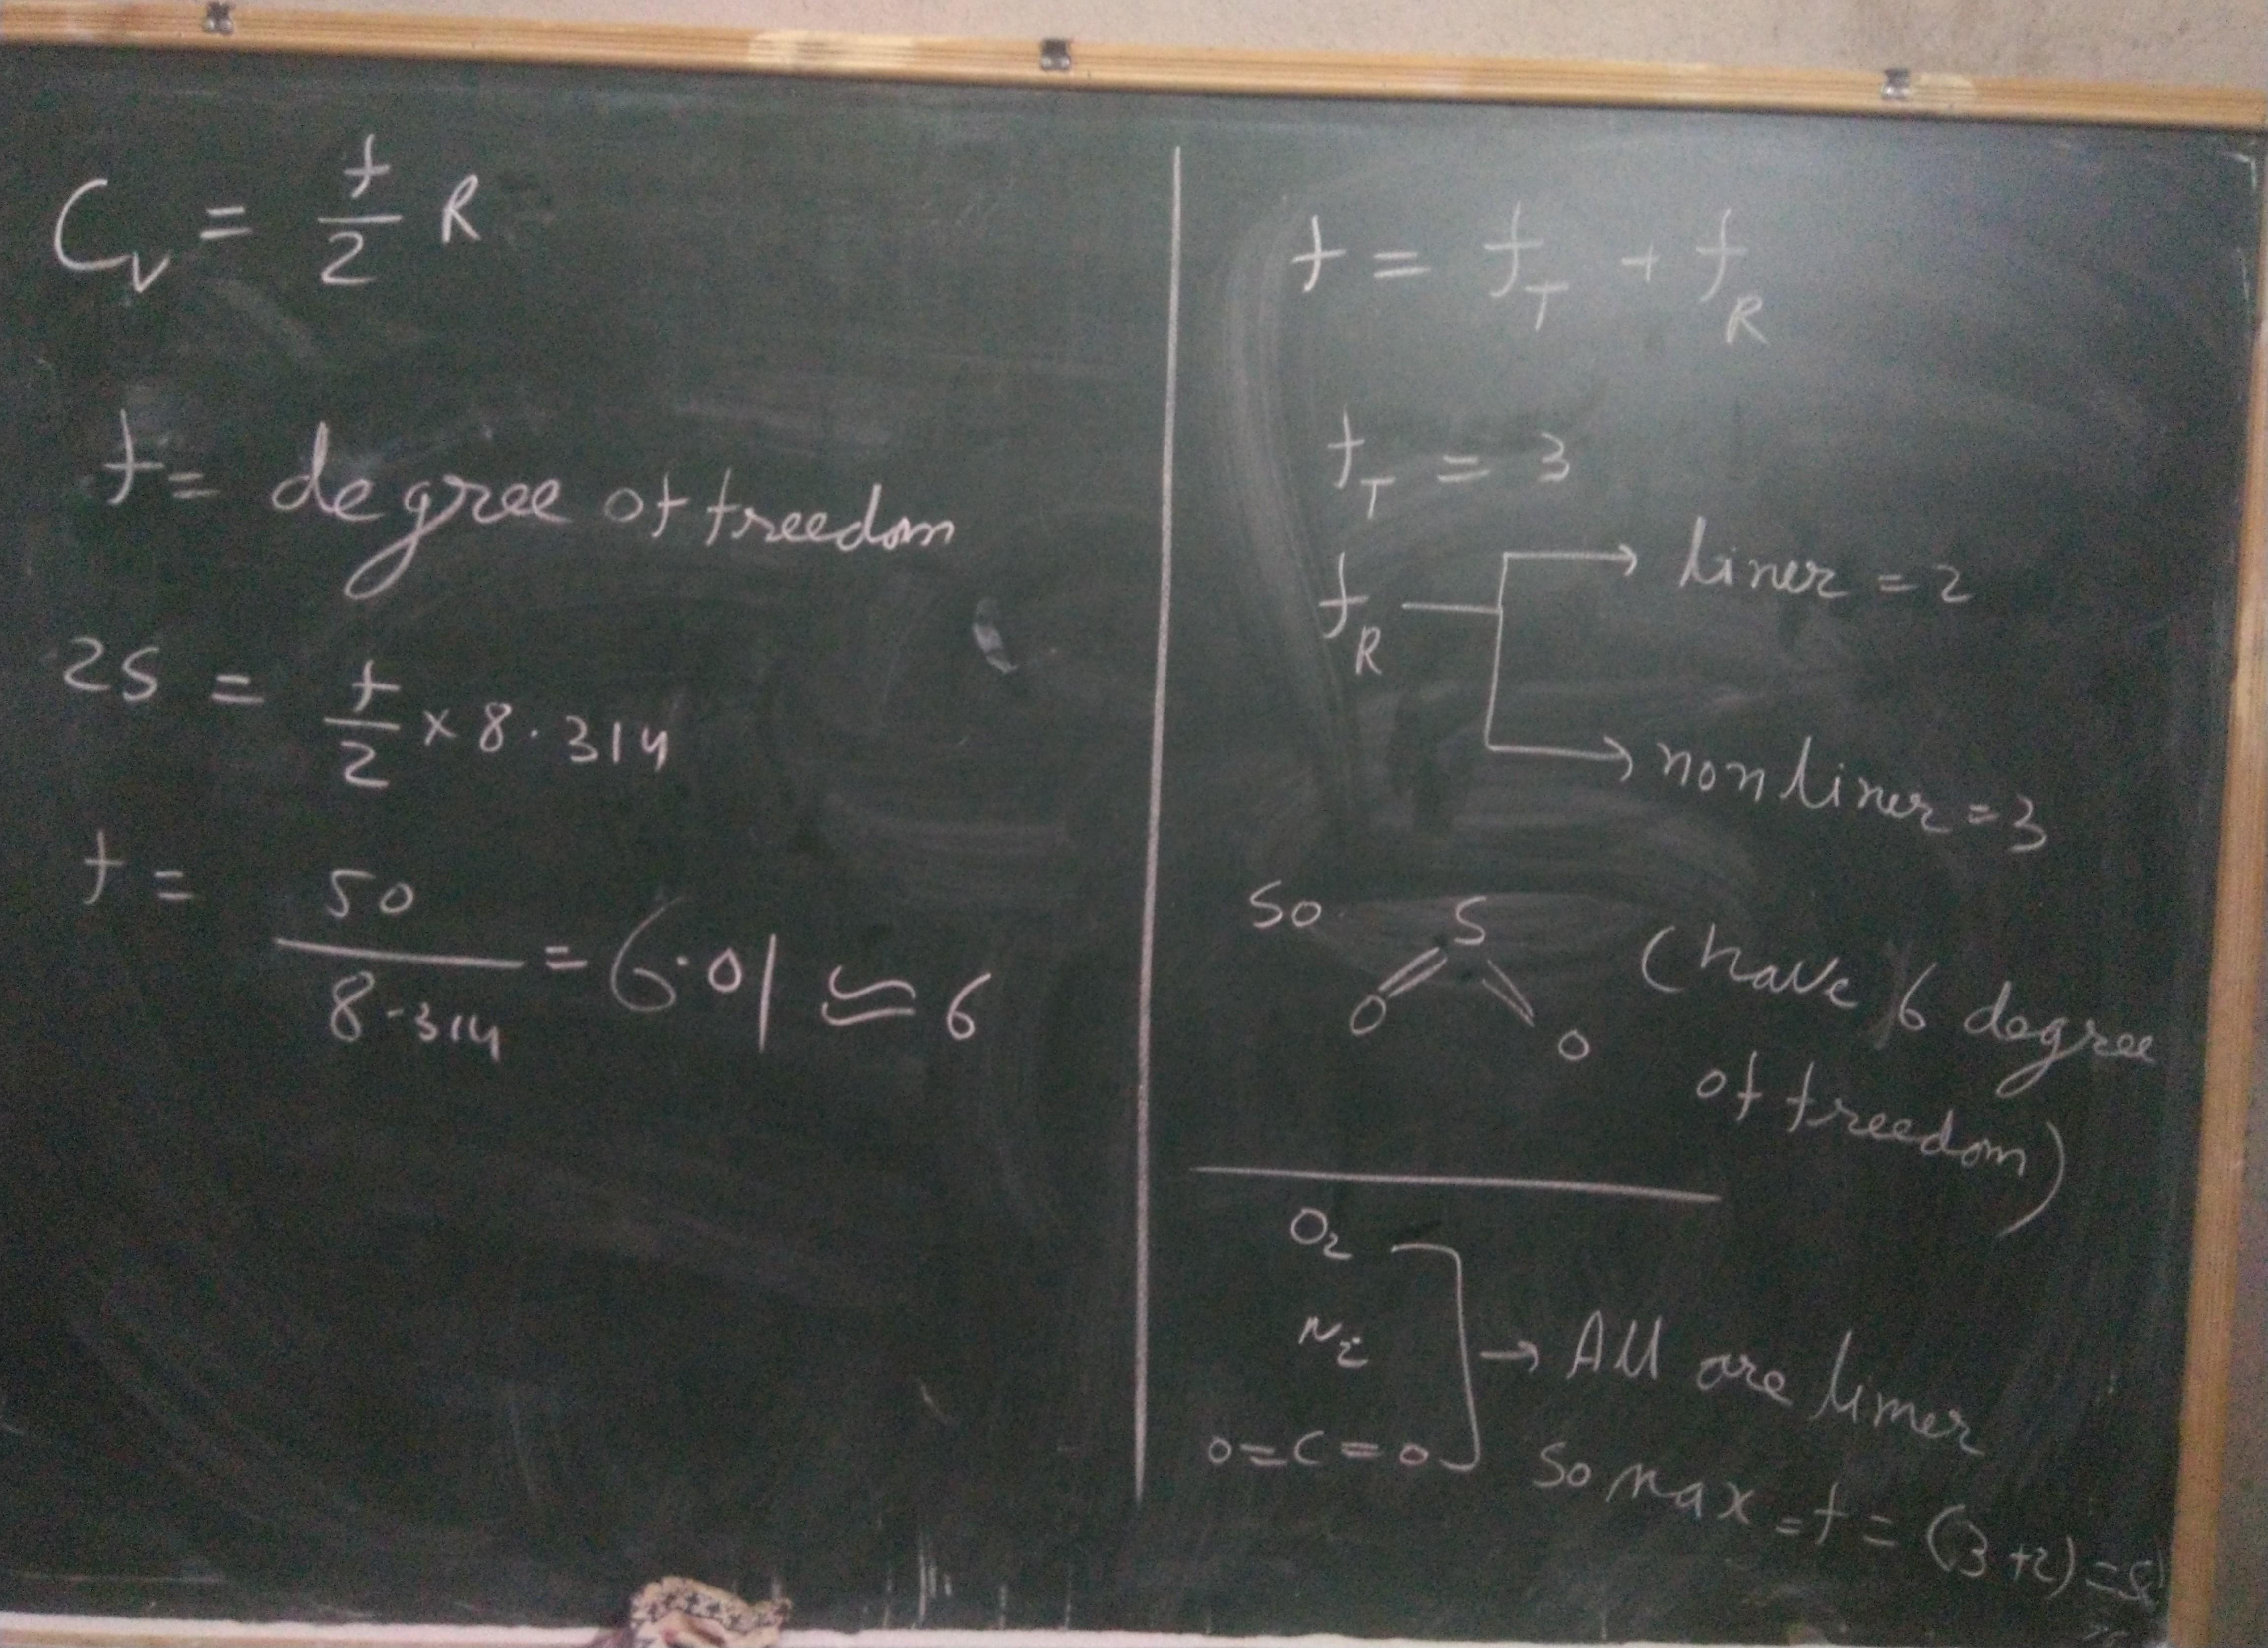 Cv = f/2 R
f = degree of freedom
25 = f/2 × 8.314
f = 50/8.314 = 6.01 ≃ 6
f = fT + fR
fT = 3
fR → Liner = 2
→ non liner = 3
So S (have 6 degree
O O
of freedom)
O2
N2 → All are limer
O=C=O So max = f = (3+2) =